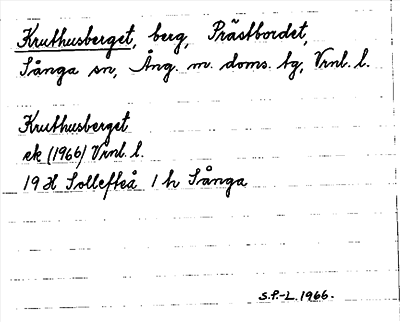 Kruthusberget, berg, Prästbordet,
Sånga sn, Ång. m. doms. tg, Vrnl. l.
Kruthusberget
ek (1966) Vrnl. l.
19 H Sollefteå 1 h Sånga
S.P.-L. 1966.